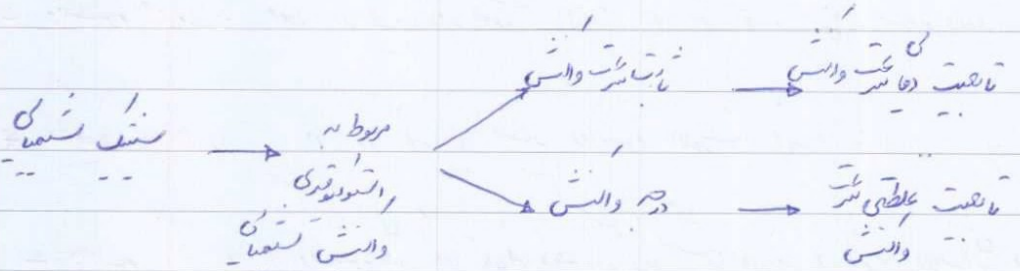 سنتیک شیمیایی
مربوط به
استوکیومتری
واکنش شیمیایی
ثابت سرعت واکنش
تابعیت دمایی سرعت واکنش
درجه واکنش
تابعیت غلظتی سرعت
واکنش